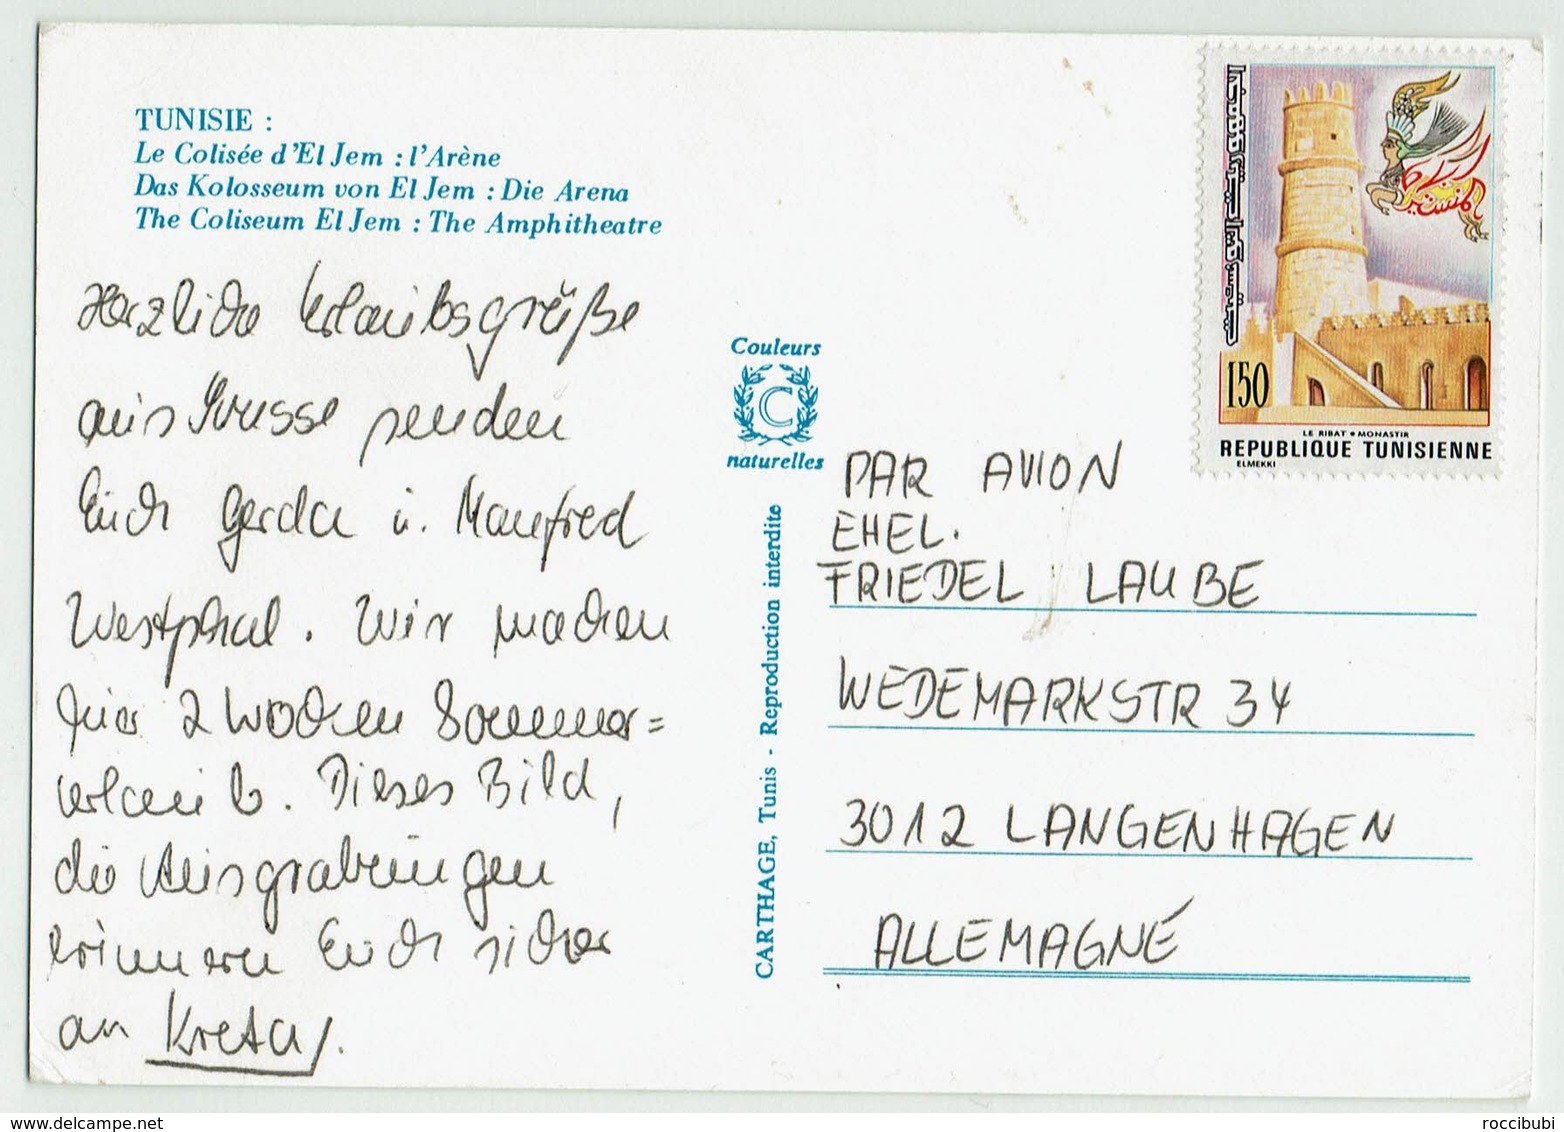 TUNISIE :
Le Colisée d'El Jem : l'Arène
Das Kolosseum von El Jem : Die Arena
The Coliseum El Jem : The Amphitheatre
Herzliche Urlaubsgrüße
aus Sousse senden
Euch Gerda u. Manfred
Westphal. Wir machen
hier 2 Wochen Sommer=
urlaub. Dieses Bild,
die Ausgrabungen
erinnern Euch sicher
an Kreta.
Couleurs
C
naturelles
CARTHAGE, Tunis - Reproduction interdite
150
LE RIBAT • MONASTIR
REPUBLIQUE TUNISIENNE
ELMEKKI
PAR AVION
EHEL.
FRIEDEL LAUBE
WEDEMARKSTR 34
3012 LANGENHAGEN
ALLEMAGNÉ
roccibubi